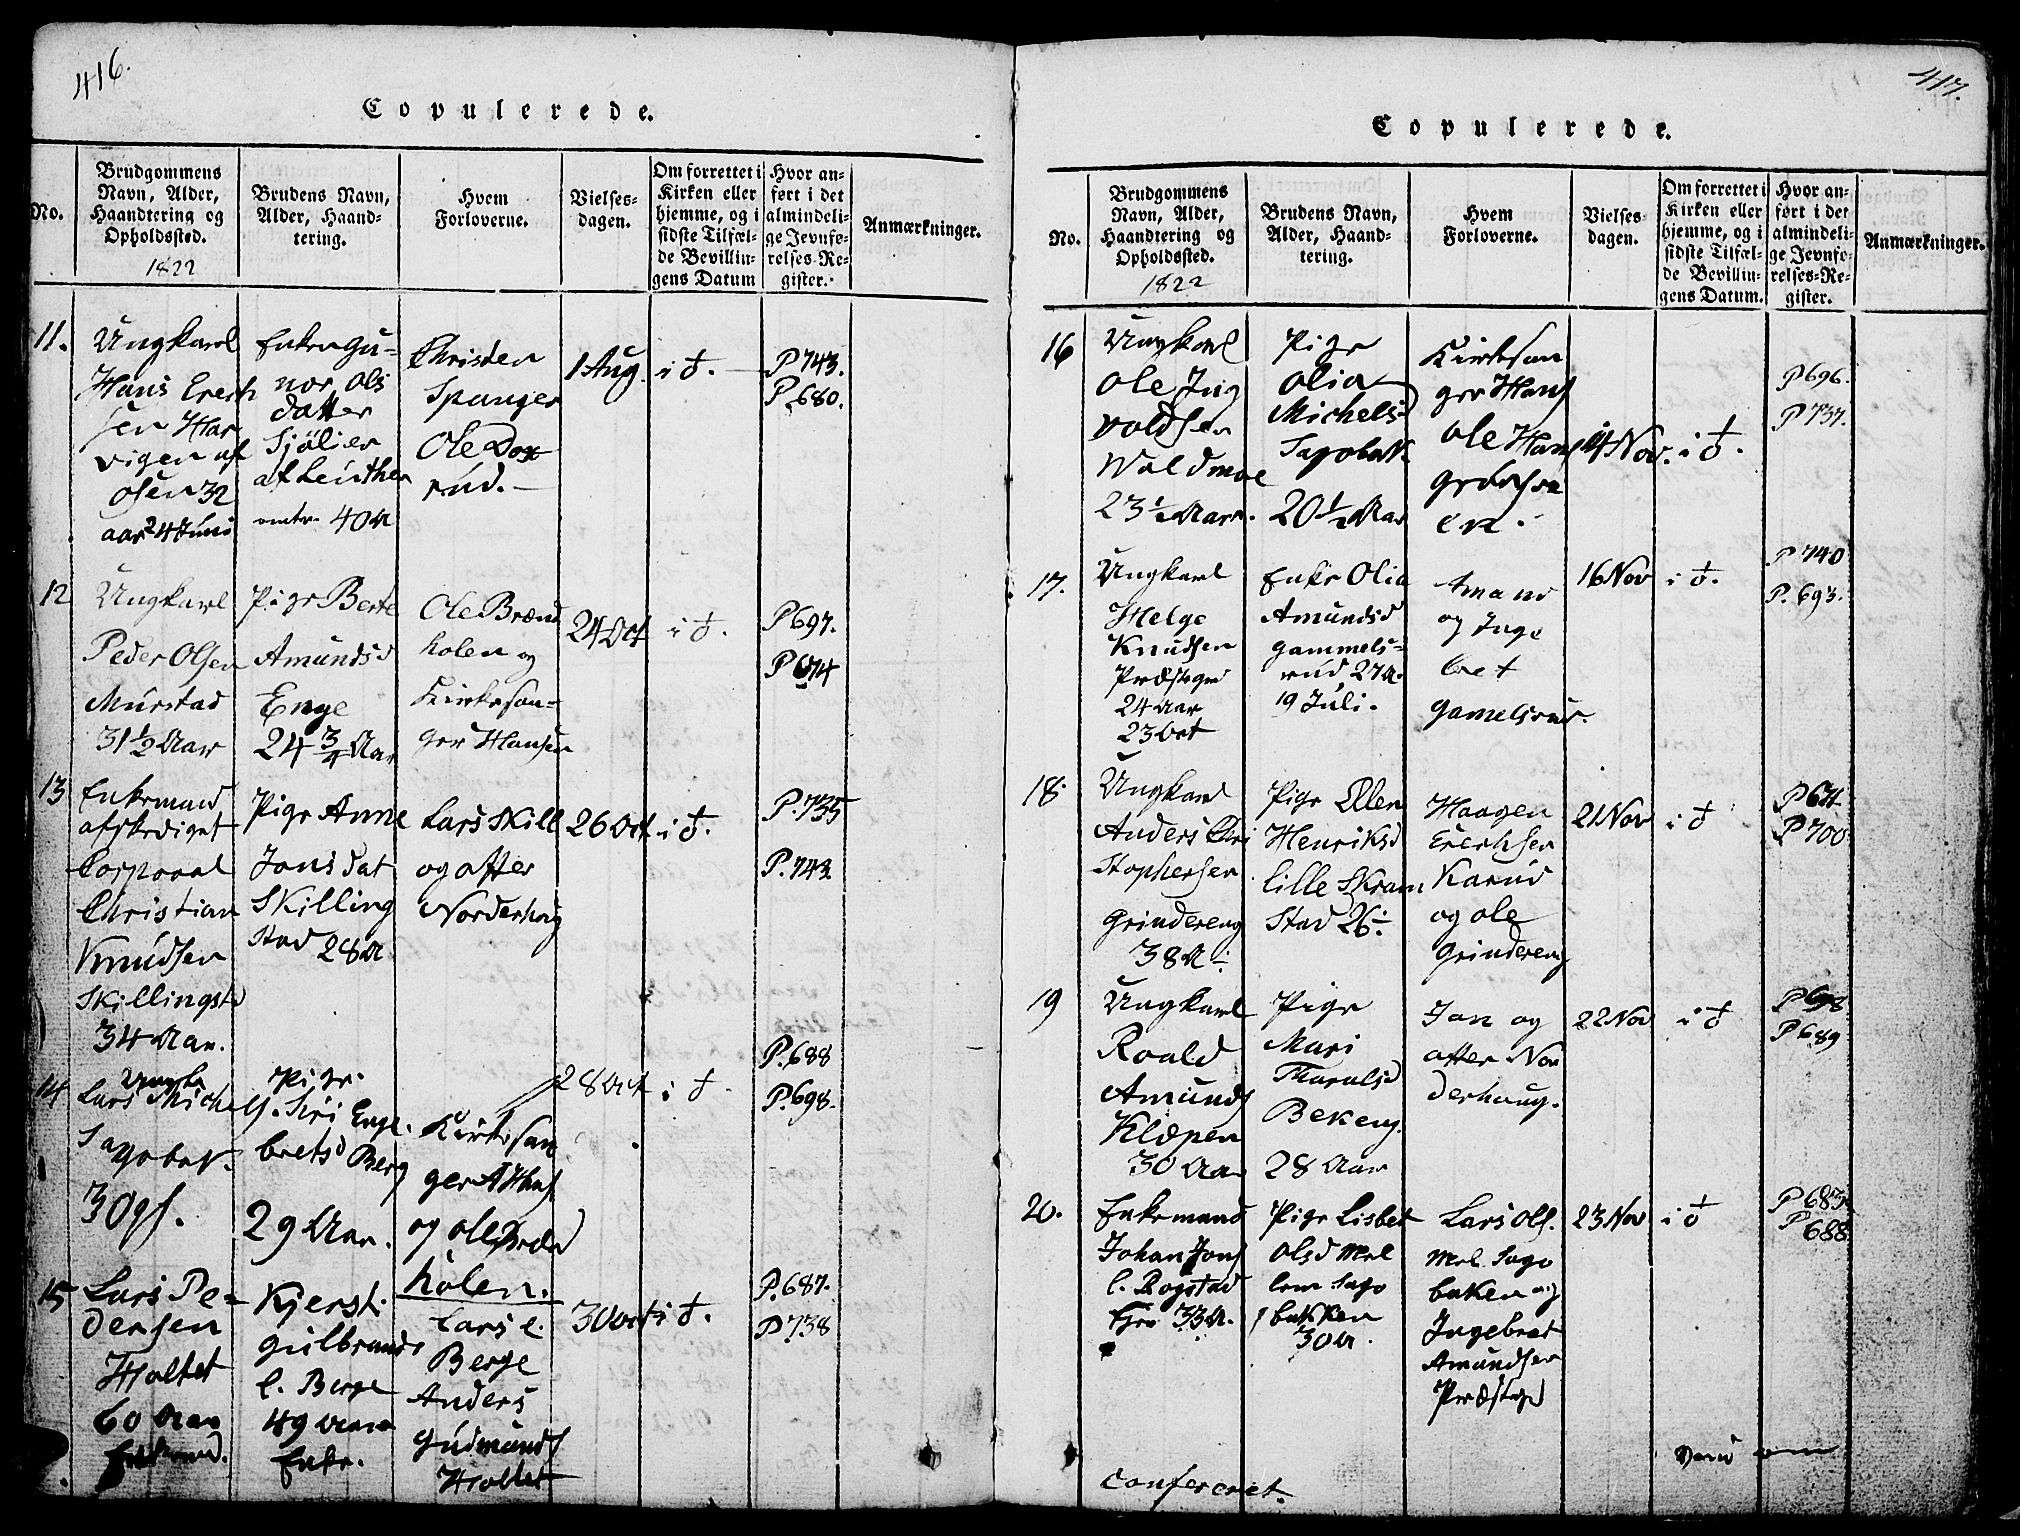 416.
Copulerede.
No.
Brudgommens
Navn, Alder,
Haandtering og
Opholdssted.
1822
Brudens Navn,
Alder, Haand-
tering.
Hvem
Forloverne.
Vielses-
dagen.
Om forrettet i
Kirken eller
hjemme, og i
sidste Tilfæl-
de Bevillin-
gens Datum
Hvor an-
ført i det
almindeli-
ge Jevnfø-
relses-Re-
gister.
Anmærkninger.
11.
Ungkarl
Hans Erech
sen Har
vigen af
Osen 32
aar 24 Juni
Enken Gu-
nor Ols
datter
Sjölier
af Leuthen
omtr. 40 A
Christen
Spanger
Ole Dox
rud.
1 Aug.
i ♁.
P 743.
P. 680.
12
Ungkarl
Peder Olsen
Murstad
31½ Aar
Pige Berte
Amundsd
Enge
24 ¾ Aar
Ole Brænd
holen og
Kirkesan-
ger Hansen
24 Oct
i ♁.
P 697.
P 674
13
Enkemand
afskediget
Corporal
Christian
Knudsen
Skillingst
34 Aar.
Pige Anne
Jons dat
Skilling
stad 28 A
Lars Skill
og Otter
Norderhug
26 Oct
i ♁.
P. 735
P. 743
14
Ungk
Lars Michels
Sagobak.
30 gl.
Pige
Siri Enge
bretsd Berg
29 Aar.
Kirkesan
ger A Hans
og Ole Bræn
holen.
28 Oct
i ♁.
P. 688
P. 698.
15
Lars Pe-
dersen
Holtet
60 Aar
Enkemand.
Kjersti
Gulbrands
l. Berge
49 Aar
Enke.
Lars l.
Berge
Anders
Gudmunds
Holtet
30 Oct
i ♁.
P. 687.
P 738
417.
Copulerede.
No.
Brudgommens
Navn, Alder,
Haandtering og
Opholdssted.
1822
Brudens Navn,
Alder, Haand-
tering.
Hvem
Forloverne.
Vielses-
dagen.
Om forrettet i
Kirken eller
hjemme, og i
sidste Tilfæl-
de Bevillin-
gens Datum.
Hvor an-
ført i det
almindeli-
ge Jevnfø-
relses-Re-
gister.
Anmærkninger.
16
Ungkarl
Ole Ing
voldsen
Woldmoe
23½ Aar.
Pige
Olia
Michelsd
Sagobak
20½ Aar
Kirkesan
ger Hans
Ole Hans
en.
14 Nov.
i ♁.
P 696.
P 737.
17.
Ungkarl
Helge
Knudsen
Præstegrd
24 Aar
23 Oct
Enke Olia
Amundsd
Gammels-
rud 27 A.
19 Juli.
Amand
og Inge
bret
Gamelsrud.
16 Nov
i ♁.
P 740
P. 693.
18.
Ungkarl
Anders Chri
stophersen
Grindereng
38 A
Pige Olen
Henriksd
Lille Skram
stad 26
Haagen
Erechsen
Karud
og Ole
Grindereng
21 Nov
i ♁
P 671
P 700
19
Ungkarl
Roald
Amunds
Klæpen
30 Aar
Pige
Mari
Tharalsd
Bekeng.
28 Aar
Jon og
Otter Nor
derhaug.
22 Nov
i ♁
P 698.
P 689
20.
Enkemand
Johan Jons
l. Rogstad
33 A.
Pige Lisbet
Olsd Mel
lem Sago
bakken
30 A.
Lars Ols.
Mel. Sago
baken og
Ingebret
Amundsen
Præstegd
23 Nov
i ♁
P 683
P 688
Confereret.